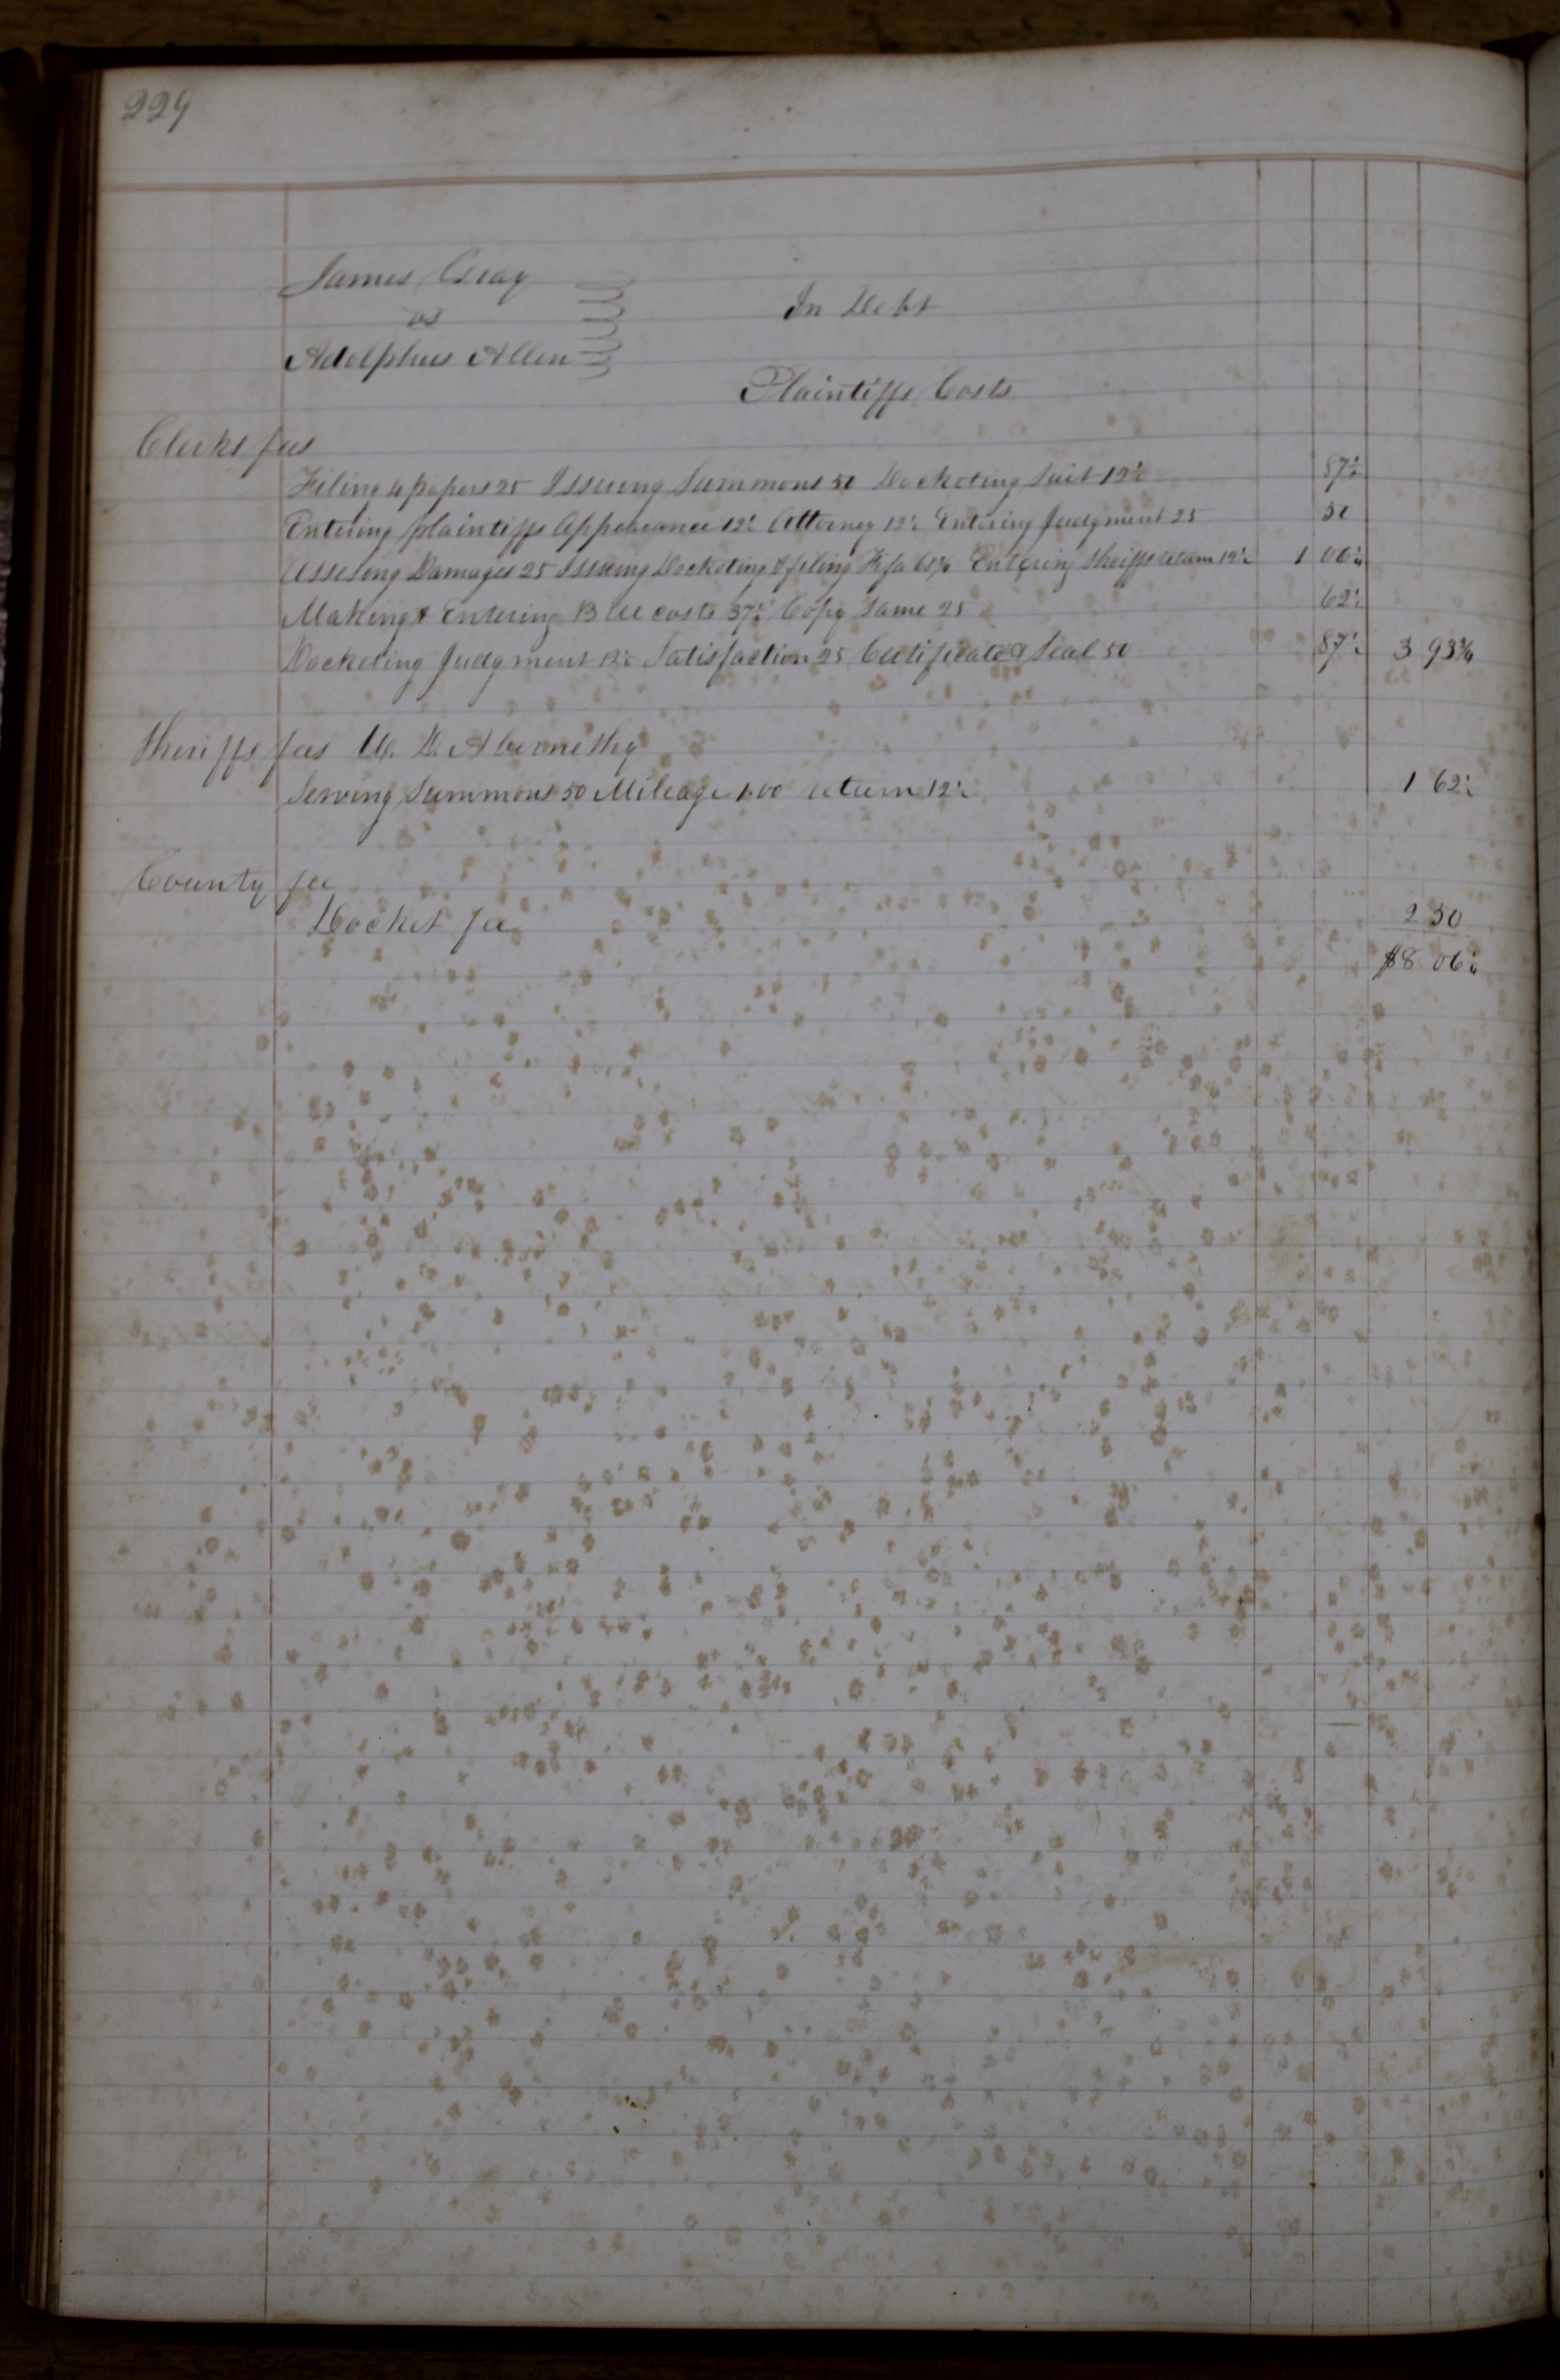 224
James Gray
vs
Adolphus Allen
In Debt
Plaintiffs Costs
Clerks fees
Filing 4 papers 25 Issuing Summons 50 Docketing Suit 12½ 87½
Entering plaintiffs Appearance 12½ Attorney 12½ Entering Judgment 25 50
Assesing Damages 25 Issuing Docketing & filing Fifa 68¾ Entering Sheriffs return 12½ 1 06¼
Making & Entering Bill costs 37½ Copy Same 25 62½
Docketing Judgment 12½ Satisfaction 25 Certificate & Seal 50 87½ 3 93¾
Sheriffs fees W. D. Abernethy
Serving Summons 50 Mileage 1.00 return 12½ 1 62½
County fee
Docket fee 2 50
$8 06¼